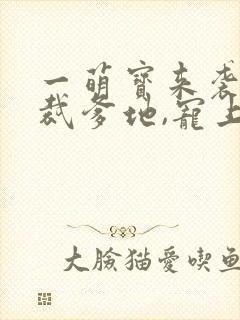 一萌寶来袭
裁爹地,寵上
大臉猫愛喫鱼